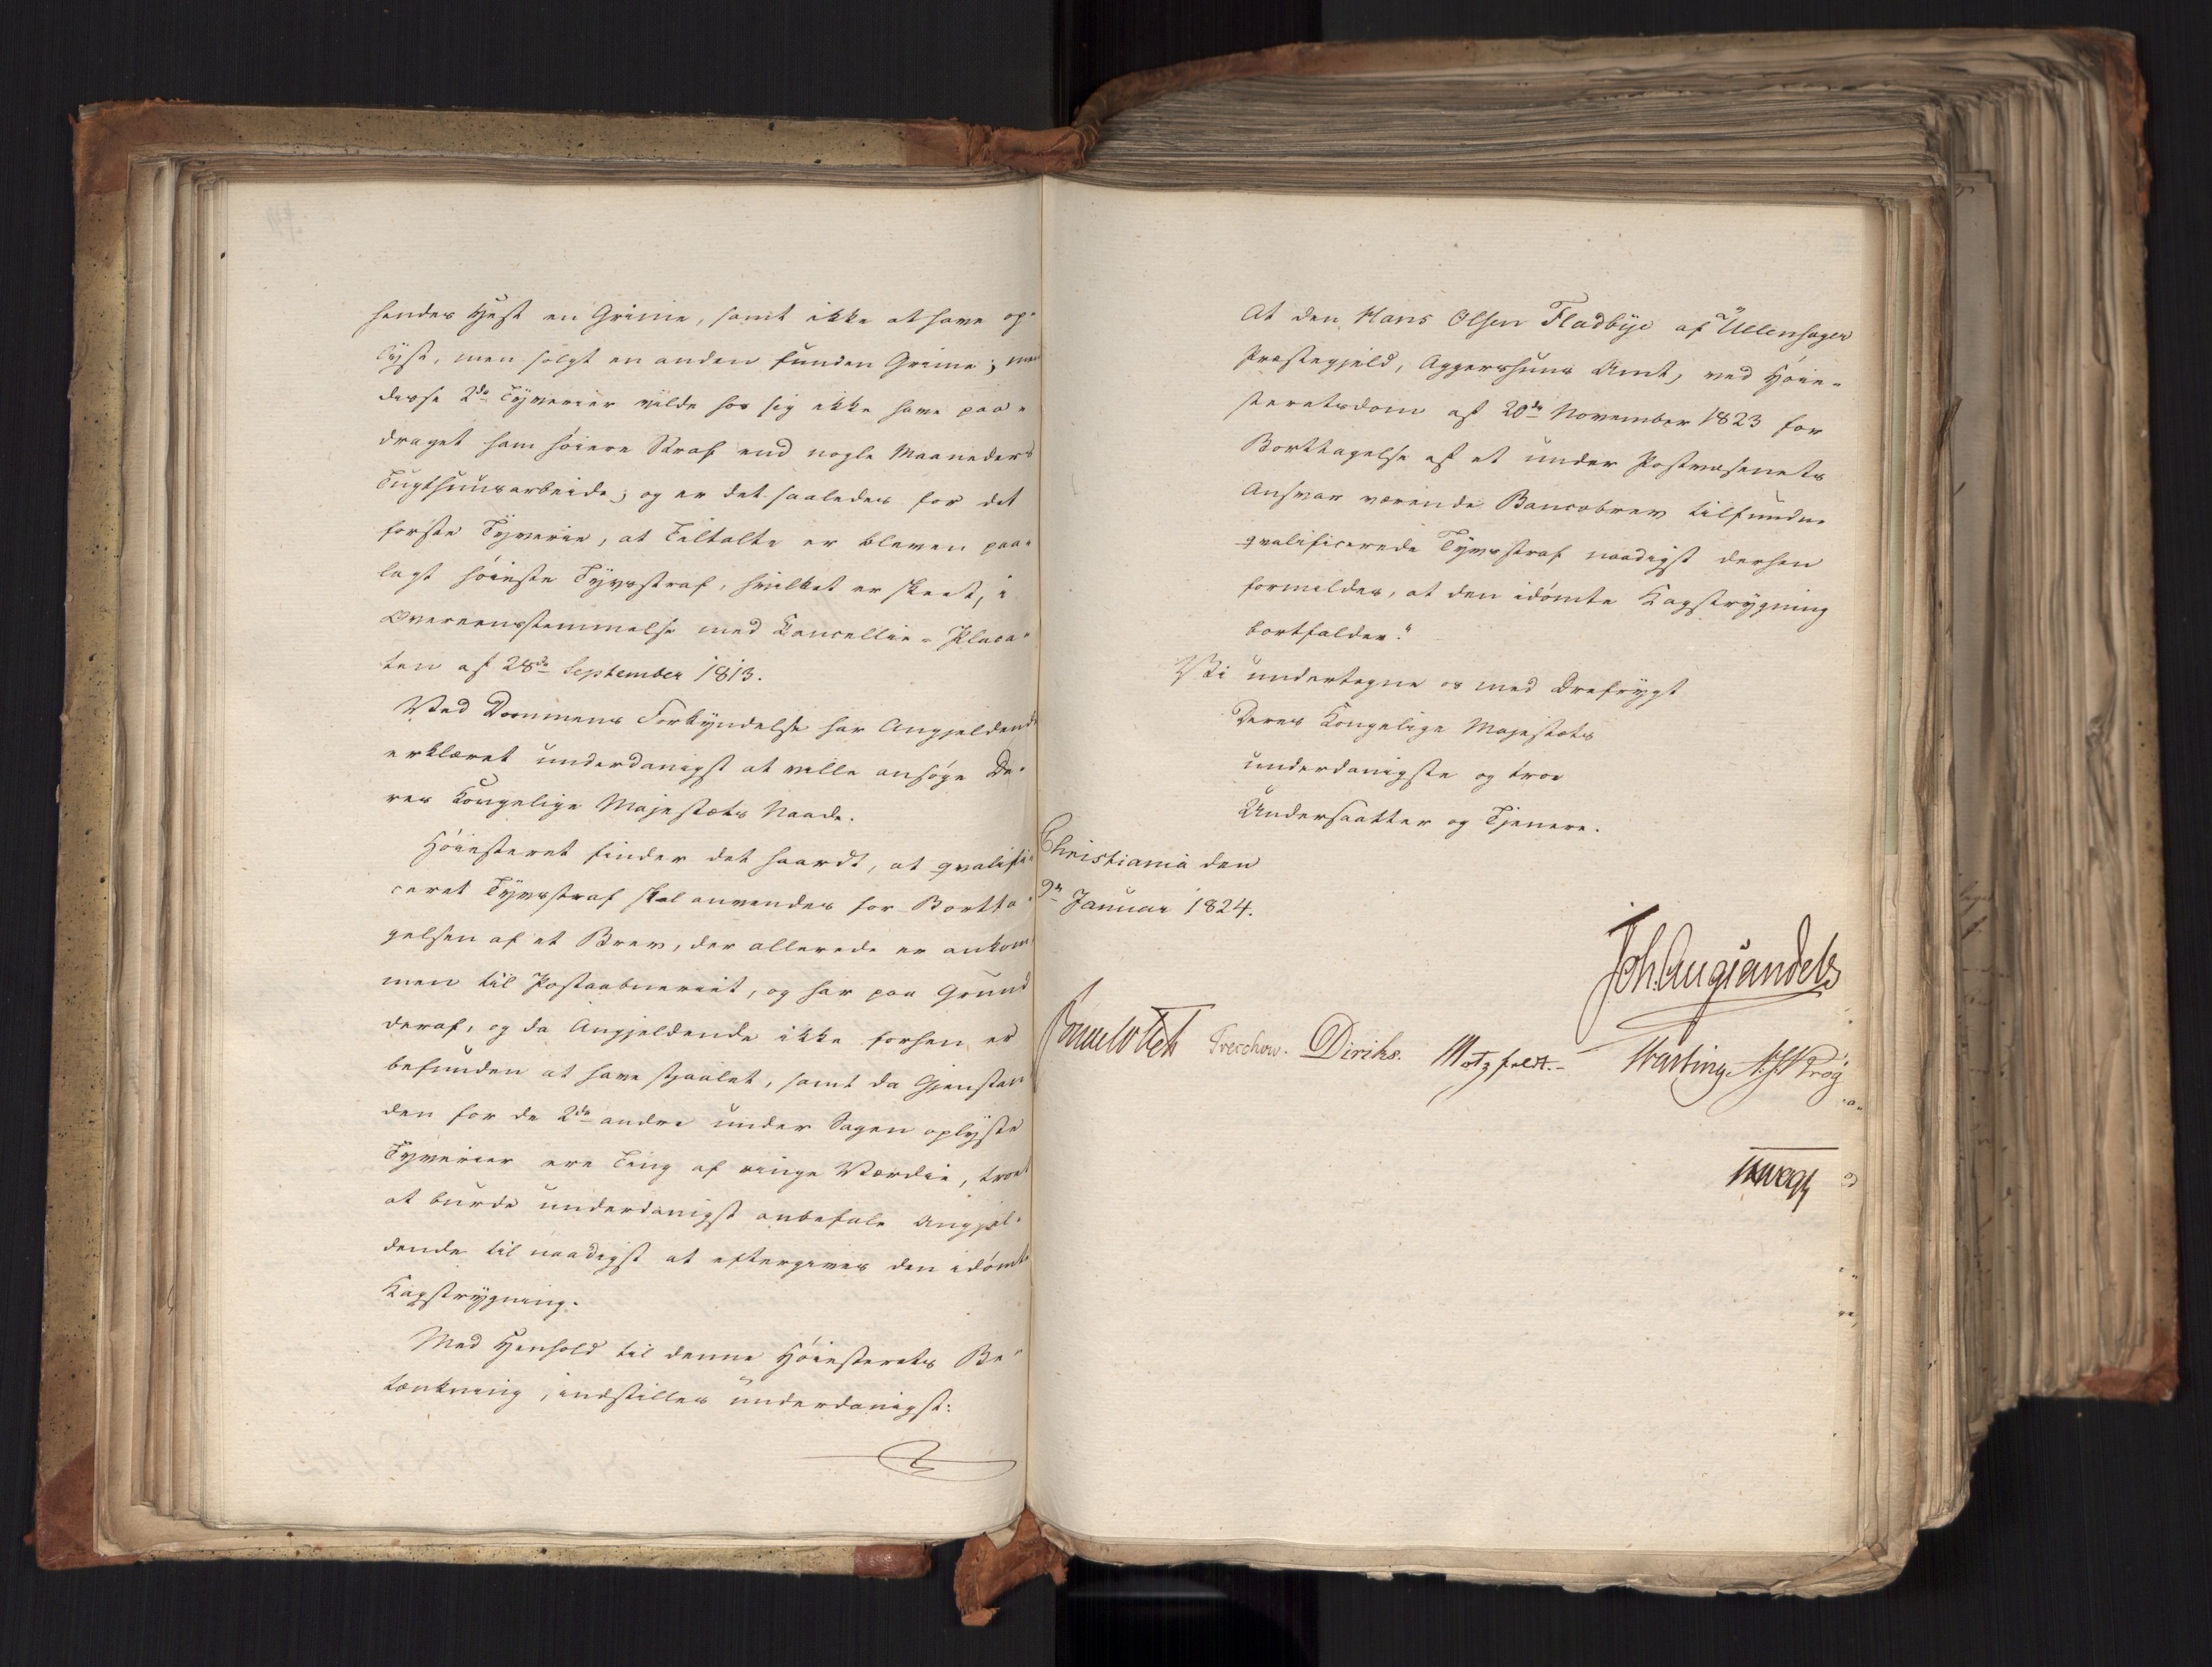 hendes Hest en Grime, samt ikke at have op-
lyst, men solgt en anden funden Grime; men
disse 2de Tyverier vilde hos sig ikke have paa-
draget ham høiere Straf end nogle Maaneders
Tugthuusarbeide; og er det saaledes for det
første Tyverie, at Tiltalte er bleven paa-
lagt høieste Tyvsstraf, hvilket er skeet, i
Overeensstemmelse med Cancellie-Placa-
ten af 28de September 1813.
Ved Dommens Forkyndelse har Angjeldende
erklæret underdanigst at ville ansøge De-
res Kongelige Majestæts Naade.
Høiesteret finder det haardt, at qvalifi-
ceret Tyvsstraf skal anvendes for Bortta-
gelsen af et Brev, der allerede er ankom-
men til Postaabneriet, og har paa Grund
deraf, og da Angjeldende ikke forhen er
befunden at have stjaalet, samt da Gjenstan-
den for de 2de andre under Sagen oplyste
Tyverier ere Ting af ringe Værdie, troet
at burde underdanigst anbefale Angjel-
dende til naadigst at eftergives den idømte
Kagstrygning.
Med Henhold til denne Høiesterets Be-
tænkning, indstilles underdanigst:
At den Hans Olsen Fladbye af Ullensager
Præstegjeld, Aggershuus Amt, ved Høie-
steretsdom af 20de November 1823 for
Borttagelse af et under Postvæsenets
Ansvar værende Bancobrev tilfundne
qvalificerede Tyvsstraf naadigst derhen
formildes, at den idømte Kagstrygning
bortfalder."
Vi undertegne os med Ærefrygt
Deres Kongelige Majestæts
underdanigste og troe
Undersaatter og Tjenere.
Christiania den
9de Januar 1824.
Joh. Aug Sandels
Sommerfeldt Treschow. Diriks. Motzfeldt. Harting. Krog